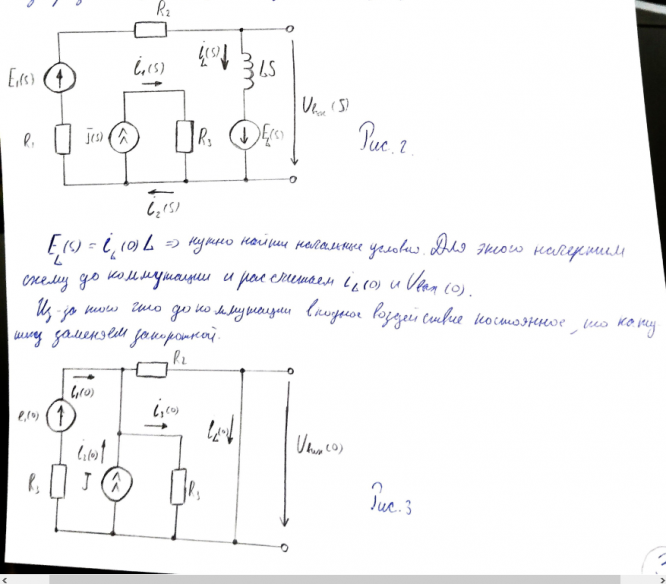 R₂
i₁(s)
i_L(s)
LS
E₁(s)
U_вых(s)
R₁
J(s)
R₃
E_L(s)
Рис. 2.
i₂(s)
E_L(s) = i_L(0) L => нужно найти начальные условия. Для этого начертим
схему до коммутации и рассчитаем i_L(0) и U_вых(0).
Из-за того что до коммутации входное воздействие постоянное, то кату-
шку заменяем закороткой.
R₂
i₁(0)
i₃(0)
e₁(0)
i_L(0)
U_вых(0)
i₂(0)
R₃
J
R₃
Рис. 3